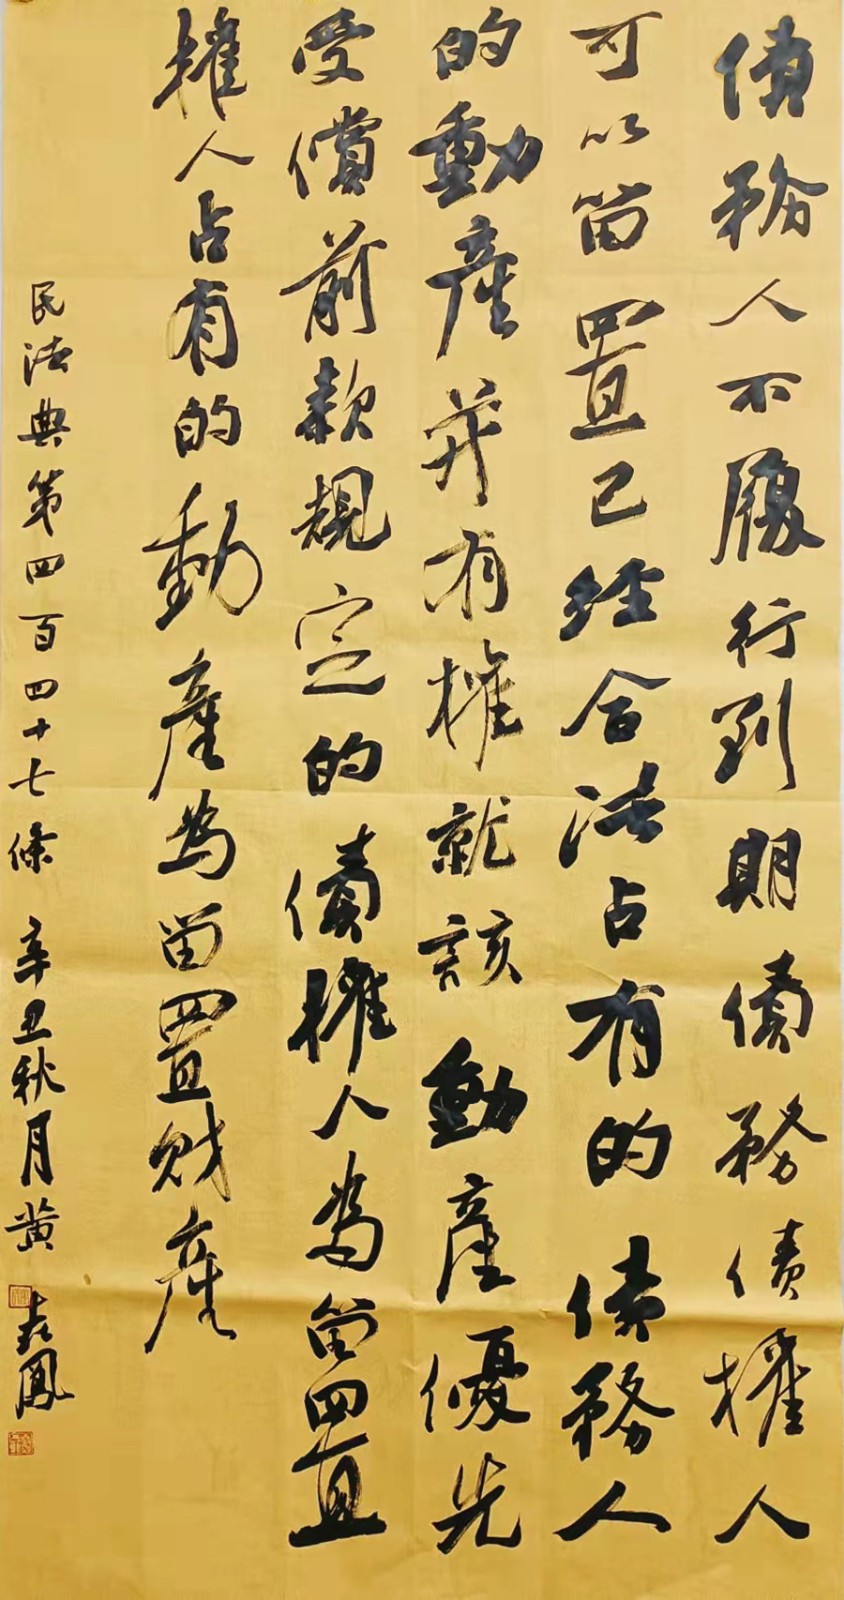 債務人不履行到期債務債權人
可以留置已經合法占有的債務人
的動產并有權就該動產優先
受償前款規定的債權人為留置
權人占有的動產為留置财產
民法典第四百四十七條 辛丑秋月黃鳳